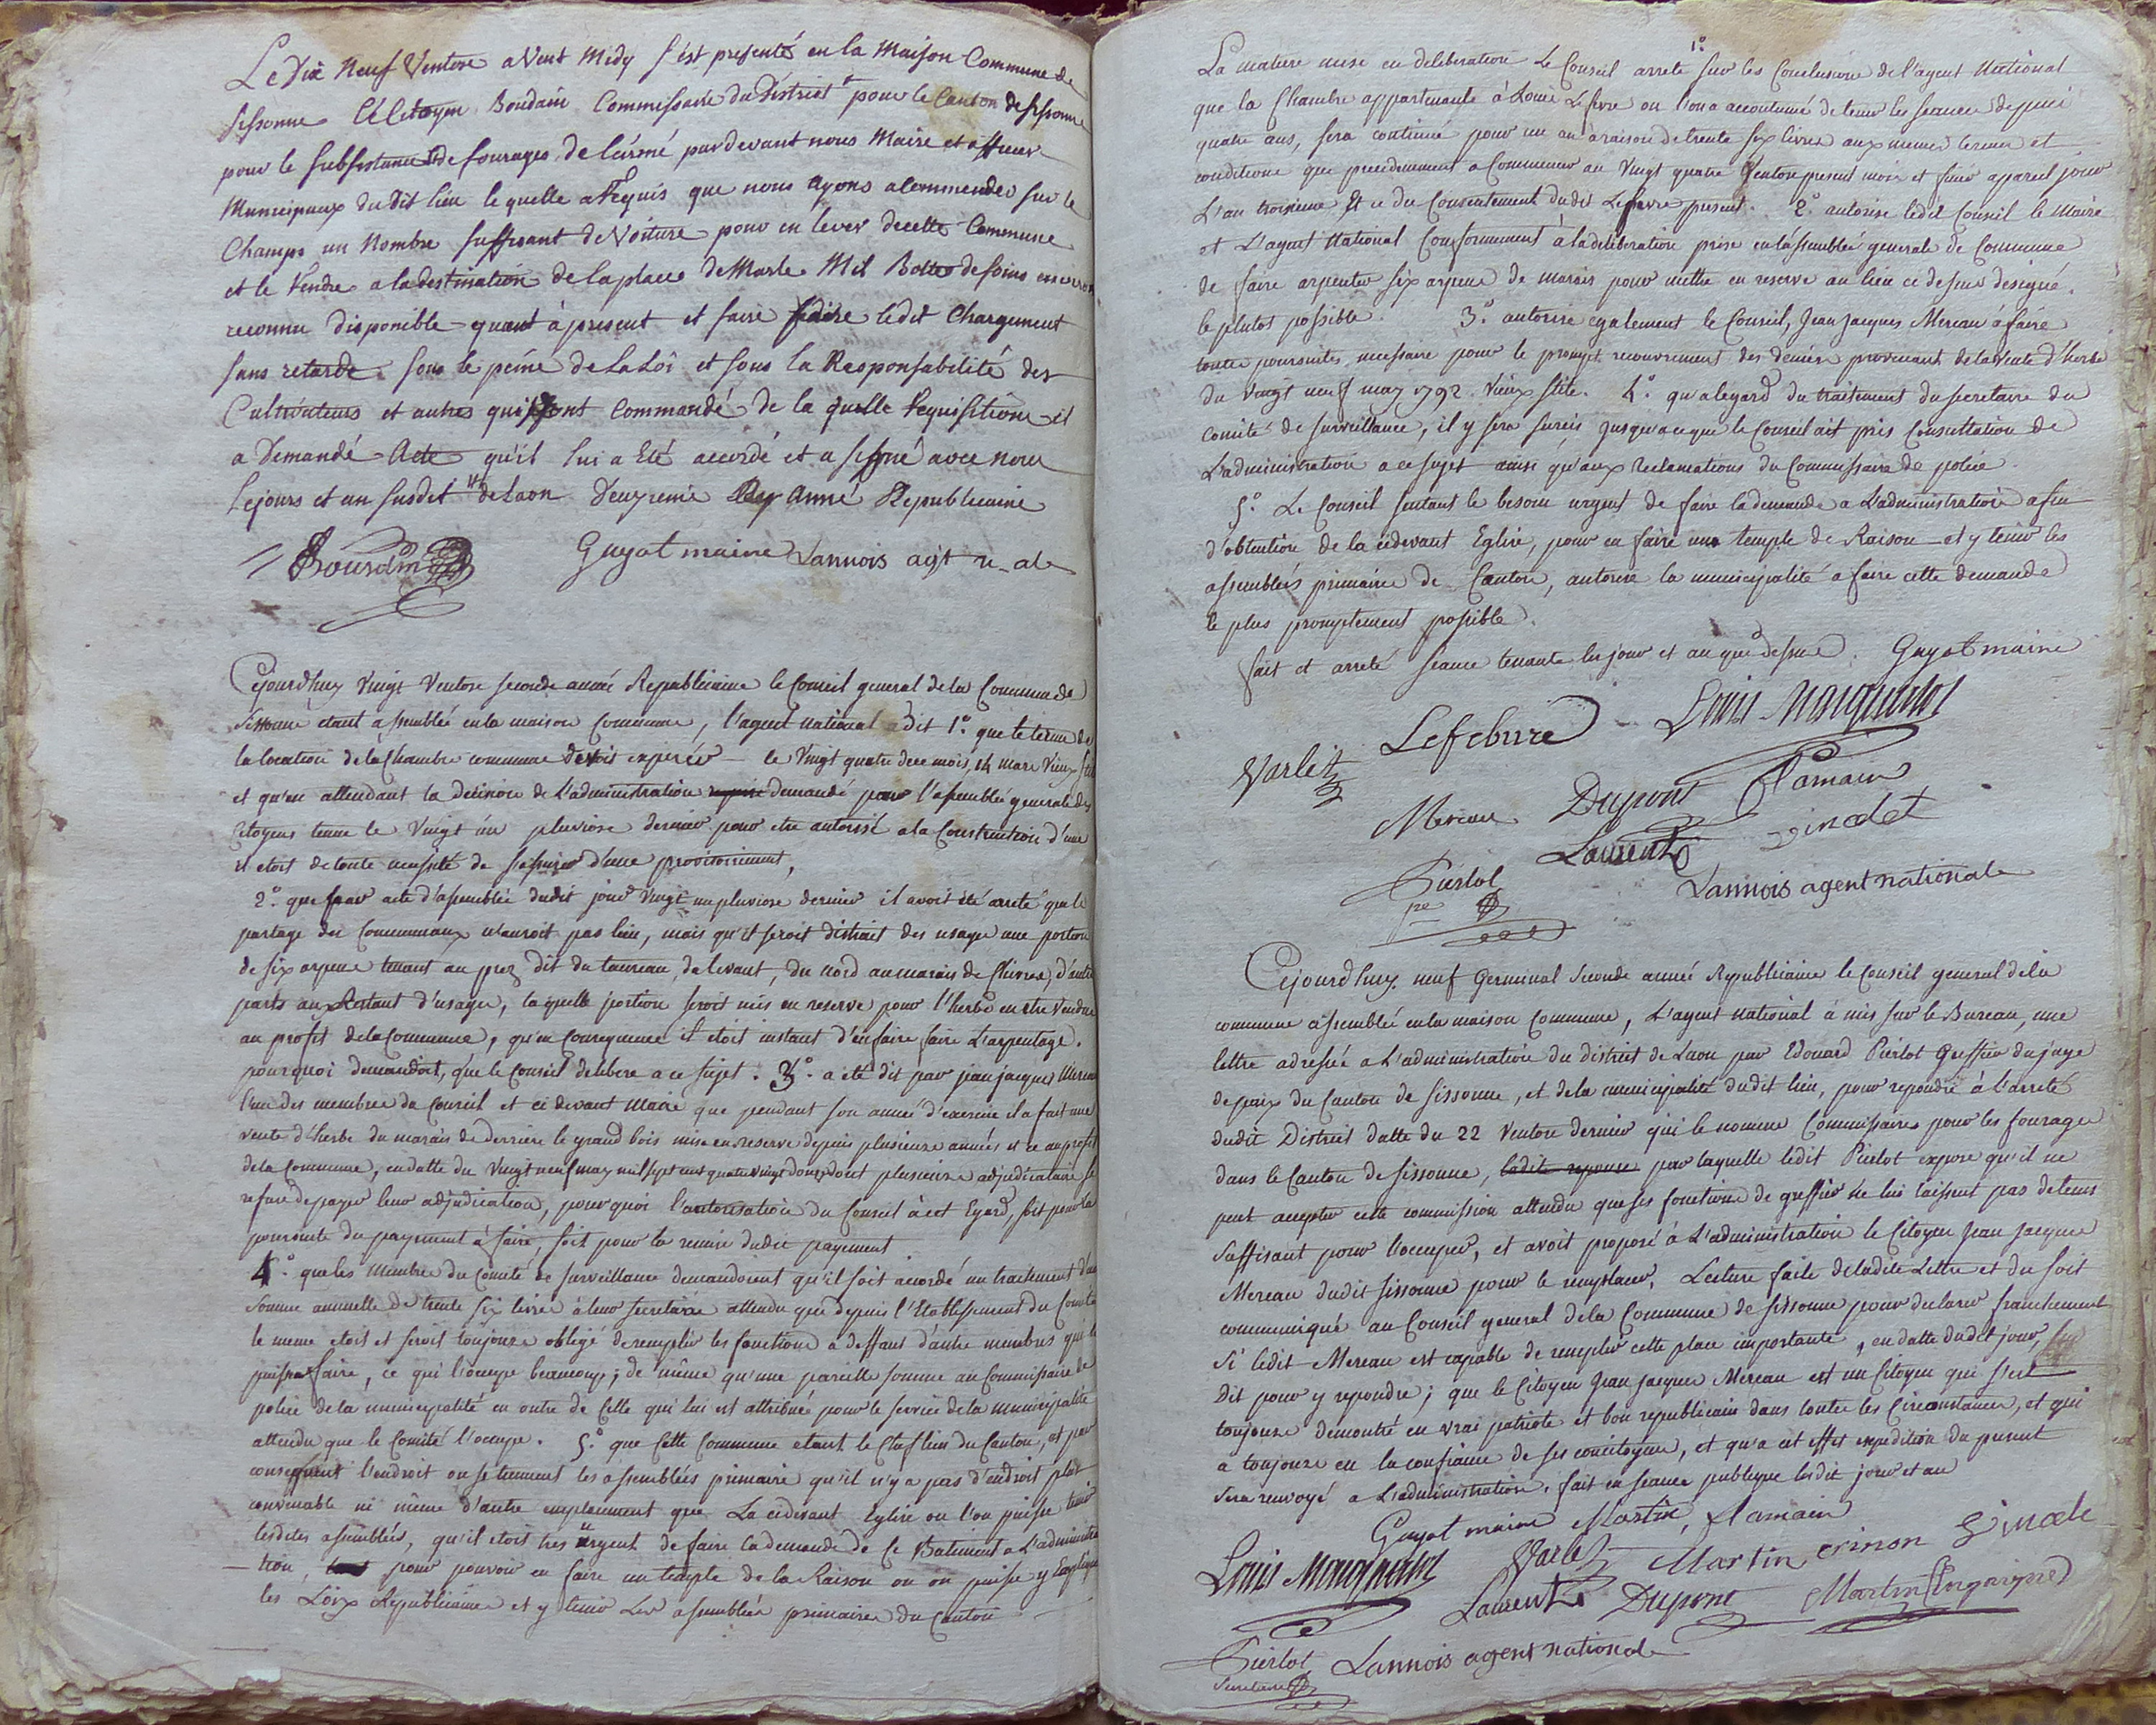 Le Dix Neuf Ventose avent Midy s'est presenté en la Maison Commune de
Sissonne le Citoyen Boudain Commissaire du District pour le Canton de Sissonne
pour le subsistance de fourages de l'armé pardevant nous Maire et officier
Municipaux du dit lieu lequelle a requis que nous ayons a Commender sur le
Champs un Nombre suffisant de Voiture pour en lever de cette Commune
et le Rendre a la destination de la place de Marle Mil Bottes de foins environ
reconnu disponible quant à present et faire ledit Chargement
sans retarde sous le peine de La Loi et sous la Responsabilité des
Cultivateurs et autres qui sont Commandé de la quelle Requisition il
a Demandé Acte qu'il lui a Eté accordé et a signé avec nous
lejours et an susdit de Laon Deuxiemе Anné Republicaine
Bourdin Guyot maire Lannois agt n-al
Cejourd'huy Vingt Ventose seconde année Republicaine le Conseil general de la Commune de
Sissonne etant assemblée en la maison Commune, l'agent national a dit 1.° que le terme de
la location de la Chambre commune devoit expirer le Vingt quatre de ce mois, 14 mars Vieux stil
et qu'en attendant la decision de L'administration demandé par l'assemblée generale des
Citoyens tenue le Vingt un pluviose dernier pour etre autorisé a la Construction d'une
il etoit de toute necessité de s'assurer d'une provisoirement,
2.° que par acte d'assemblée dudit jour Vingt un pluviose dernier il avoit été arreté que le
partage des Communaux n'auroit pas lieu, mais qu'il seroit distrait des usages une portion
de six arpens tenant au prez dit du taureau, du levant, du nord au marais de Chivres, d'autre
parts aux Restant d'usages, laquelle portion seroit mis en reserve pour l'herbe en etre Vendue
au profit de la Commune, qu'en Consequence il etoit instant d'en faire faire L'arpentage.
pourquoi demandoit, que le Conseil delibere a ce sujet. 3.° a eté dit par jean jacques Mereau
l'un des membres du Conseil et ci devant Maire que pendant son année d'exercice il a fait une
vente d'herbe du marais de derriere le grand bois mise en reserve depuis plusieurs années et ce au profit
de la Commune, en datte du Vingt neuf may mil sept cent quatre vingt douze, dont plusieurs adjudicataires se
refuse de payer leur adjudication, pourquoi l'autorisation du Conseil à cet Egard, soit pour la
poursuite du payement à faire, soit pour la remise dudit payement
4.° que les Membres du Comité de surveillance demandoient qu'il soit accordé un traitement d'une
somme annuelle de trente six livres à leur secretaire attendu que depuis l'Etablissement du Comité
le meme etoit et seroit toujours obligé de remplir les fonctions a deffaut d'autre membres qui le
puisse faire, ce qui l'occupe beaucoup; de même qu'une pareille somme au Commissaire de
police de la municipalité en outre de Celle qui lui est attribuée pour le service de la municipalité
attendu que le Comité l'occupe. 5.° que Cette Commune etant le Cheflieu du Canton, et par
consequent l'endroit ou se tiennent les assemblées primaire qu'il n'y a pas d'endroit plus
convenable ni même d'autre emplacement que La cidevant Eglise ou l'on puisse tenir
lesdites assemblées, qu'il etoit tres urgent de faire la demande de Ce Batiment a L'administra
tion, pour pouvoir en faire un temple de la Raison ou on puisse y Expliquer
les Loix Republicaines et y tenir Les assemblées primaires du Canton
La matiere mise en deliberation Le Conseil arrete 1.° sur les Conclusions de l'agent National
que la Chambre appartenante à Louis Lefevre ou l'on a accoutumé de tenir les seances depuis
quatre ans, sera continué pour un an à raison de trente six livres aux memes termes et
conditions que precedemment a Commencer au Vingt quatre Ventose present mois et finir a pareil jour
L'an troisieme Et ce du Consentement dudit Lefevre present. 2.° autorise ledit Conseil le Maire
et L'agent National Conformement à la deliberation prise en l'assemblée generale de Commune
de faire arpenter six arpens de marais pour mettre en reserve au lieu ci dessus designé.
le plutot possible. 3.° autorise egalement le Conseil, Jean Jacques Mereau à faire
toutes poursuites necessaire pour le prompt recouvrement des deniers provenant de la Vente d'herbe
du Vingt neuf may 1792. Vieux stile. 4.° qu'a l'egard du traitement du secretaire du
Comité de surveillance, il y sera sureis jusqu'a ce que le Conseil ait pris Consultation de
L'administration a ce sujet ainsi qu'aux Reclamations du Commissaire de police.
5.° Le Conseil sentant le besoin urgent de faire la demande a L'administration afin
d'obtention de la cidevant Eglise, pour en faire un temple de Raison et y tenir les
assemblées primaires de Canton, autorise la municipalité a faire cette demande
le plus promptement possible.
fait et arreté seance tenante les jour et an que dessus. Guyot maire
Varlet Lefebvre Louis Marquinot
Mereau Dupont Flamain
Laurent Sinodet
Pierlot Lannois agent national
Cejourd'huy neuf Germinal seconde année Republicaine le Conseil general de la
commune assemblée en la maison Commune, L'agent national à mis sur le Bureau, une
lettre adressée a L'administration du district de Laon par Edouard Pierlot Greffier du juge
de paix du Canton de Sissonne, et de la municipalité dudit lieu, pour repondre à l'arreté
dudit District datte du 22 Ventose dernier qui le nomme Commissaires pour les fourages
dans le Canton de Sissonne, ladite reponse par laquelle ledit Pierlot expose qu'il ne
peut accepter cette commission attendu que ses fonctions de greffier ne lui laissent pas de tems
suffisant pour l'occuper, et avoit proposé à L'administration le Citoyen Jean Jacques
Mereau dudit Sissonne pour le remplacer, Lecture faite de ladite Lettre et du soit
communiqué au Conseil general de la Commune de Sissonne pour declarer franchement
si ledit Mereau est capable de remplir cette place importante, en datte dudit jour,
Dit pour y repondre; que le Citoyen Jean Jacques Mereau est un Citoyen qui s'est
toujours demontré en vrai patriote et bon republicain dans toutes les Circonstances, et qui
a toujours eu la confiance de ses concitoyens, et qu'a cet effet expedition du present
sera renvoyé a L'administration. fait en seance publique lesdit jour et an
Guyot maire Martin, Flamain
Louis Marquinot Varlet Martin crinon Sinode
Laurent Dupont Martin
Pierlot Lannois agent national
Secretaire